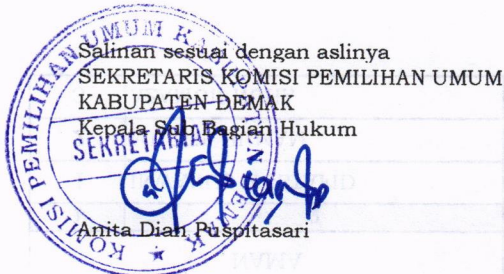 Salinan sesuai dengan aslinya
SEKRETARIS KOMISI PEMILIHAN UMUM
KABUPATEN DEMAK
Kepala Sub Bagian Hukum
Anita Diah Puspitasari
KOMISI PEMILIHAN UMUM KABUPATEN DEMAK
SEKRETARIAT